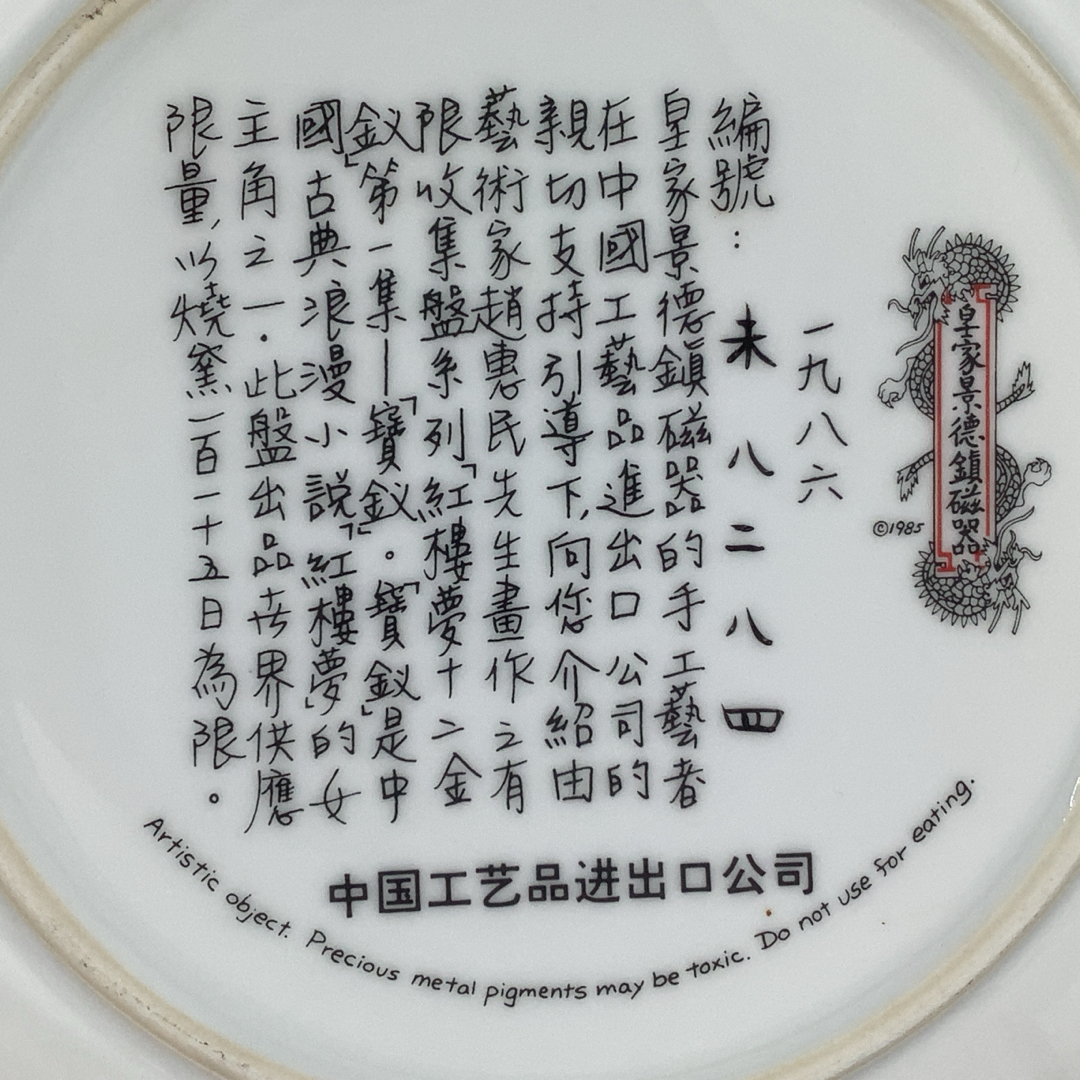 皇家景德鎮磁器
©1985
一九八六
編號：未八二八四
皇家景德鎮磁器的手工藝者
在中國工藝品進出口公司的
親切支持引導下,向您介紹由
藝術家趙惠民先生畫作之有
限收集盤系列「紅樓夢十二金
釵」第一集—「寶釵」。「寶釵」是中
國古典浪漫小說「紅樓夢」的女
主角之一.此盤出品世界供應
限量,以燒窯一百一十五日為限。
中国工艺品进出口公司
Artistic object. Precious metal pigments may be toxic. Do not use for eating.